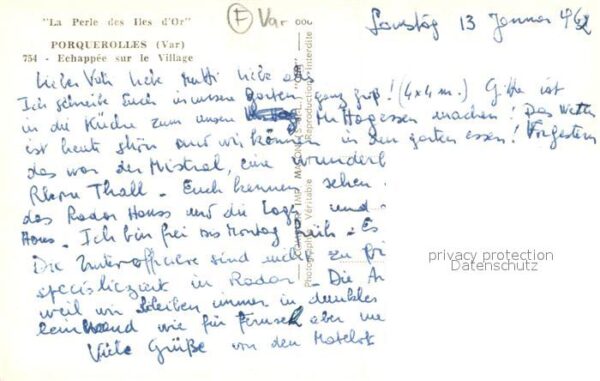 "La Perle des Iles d'Or"
F Var
PORQUEROLLES (Var)
754 - Echappée sur le Village
Samstag 13 Januar 1962
Lieber Vati liebe Mutti liebe
Ich schreibe Euch in unsere Garten ganz groß! (4x4 m.) Gitte ist
in die Küche zum unseren Mittagessen machen! Das Wetter
ist heute schön und wir können in den garten essen! Vorgestern
das war der Mistral, eine wunderb
Rhone Thall - Euch kennen sehen
das Radar Hauss und die Loggia und
Haus - Ich bin frei bis Montag früh - Es
Die Unteroffiziere sind nicht zu
in Radar - Die
weil wir bleiben immer in dunkles
wie für Fernseh aber
Viele Grüße von den Matelot
Photographie Véritable
Reproduction Interdite
privacy protection
Datenschutz